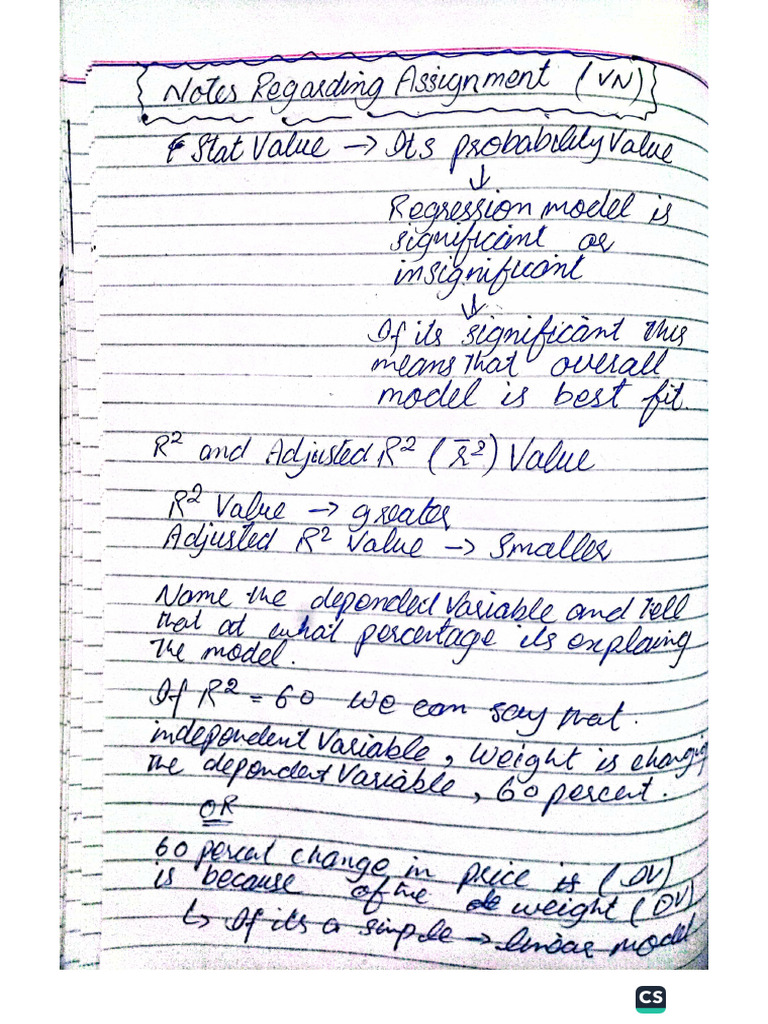 Notes Regarding Assignment (VN)
F Stat Value → Its probability Value
↓
Regression model is
significant or
insignificant
↓
If its significant this
means that overall
model is best fit.
R² and Adjusted R² (r̄²) Value
R² Value → greater
Adjusted R² Value → Smaller
Name the depended Variable and tell
that at what percentage its explaing
the model.
If R² = 60 we can say that.
independent Variable, Weight is changing
the dependent Variable, 60 percent.
OR
60 percat change in price is (DV)
is because of the weight (DV)
↳ If its a simple → linear model
CS